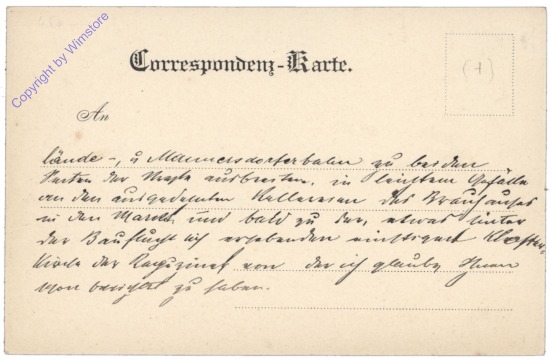 Copyright by Wimstore
Correspondenz-Karte.
(+)
An
lände-, u Mannersdorferbahn zu beiden
Seiten der ausbreiten, in leichtem Gefälle
an den ausgedehnten Kellereien des Brauhauses
in den Markt und bald zu der, etwas hinter
der Bauflucht sich erhebenden einstigen Kloster-
Kirche der von der ich glaube, Ihnen
schon berichtet zu haben.